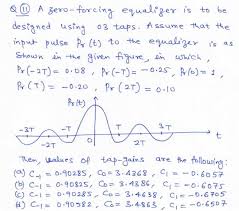 Q(11) A zero-forcing equalizer is to be
designed using 03 taps. Assume that the
input pulse Pr(t) to the equalizer is as
shown in the given figure, in which,
Pr(-2T) = 0.08, Pr(-T) = -0.25, Pr(0) = 1,
Pr(T) = -0.20, Pr(2T) = 0.10
Pr(t)
-3T -2T -T 0 T 2T 3T t
Then, values of tap-gains are the following:
(a) C-1 = 0.90285, C0 = 3.4368, C1 = -0.6057
(b) C-1 = 0.90825, C0 = 3.4386, C1 = -0.6075
(c) C-1 = 0.90285, C0 = 3.4638, C1 = -0.5705
(d) C-1 = 0.90582, C0 = 3.4863, C1 = -0.6507